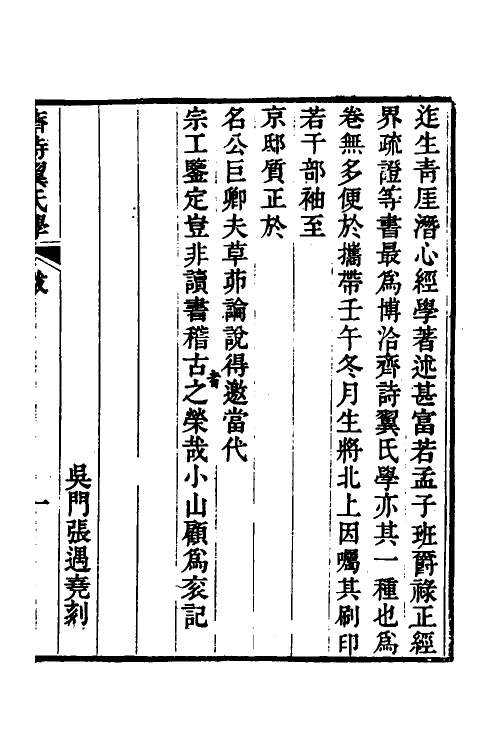 迮生青厓潛心經學著述甚富若孟子班爵祿正經
界疏證等書最爲博洽齊詩翼氏學亦其一種也爲
卷無多便於攜帶壬午冬月生將北上因囑其刷印
若干部袖至
京邸質正於
名公巨卿夫草茆論說得邀當代
宗工鑒定豈非讀書稽古者之榮哉小山顧爲亥記
吳門張遇堯刻
齊詩翼氏學
跋
一